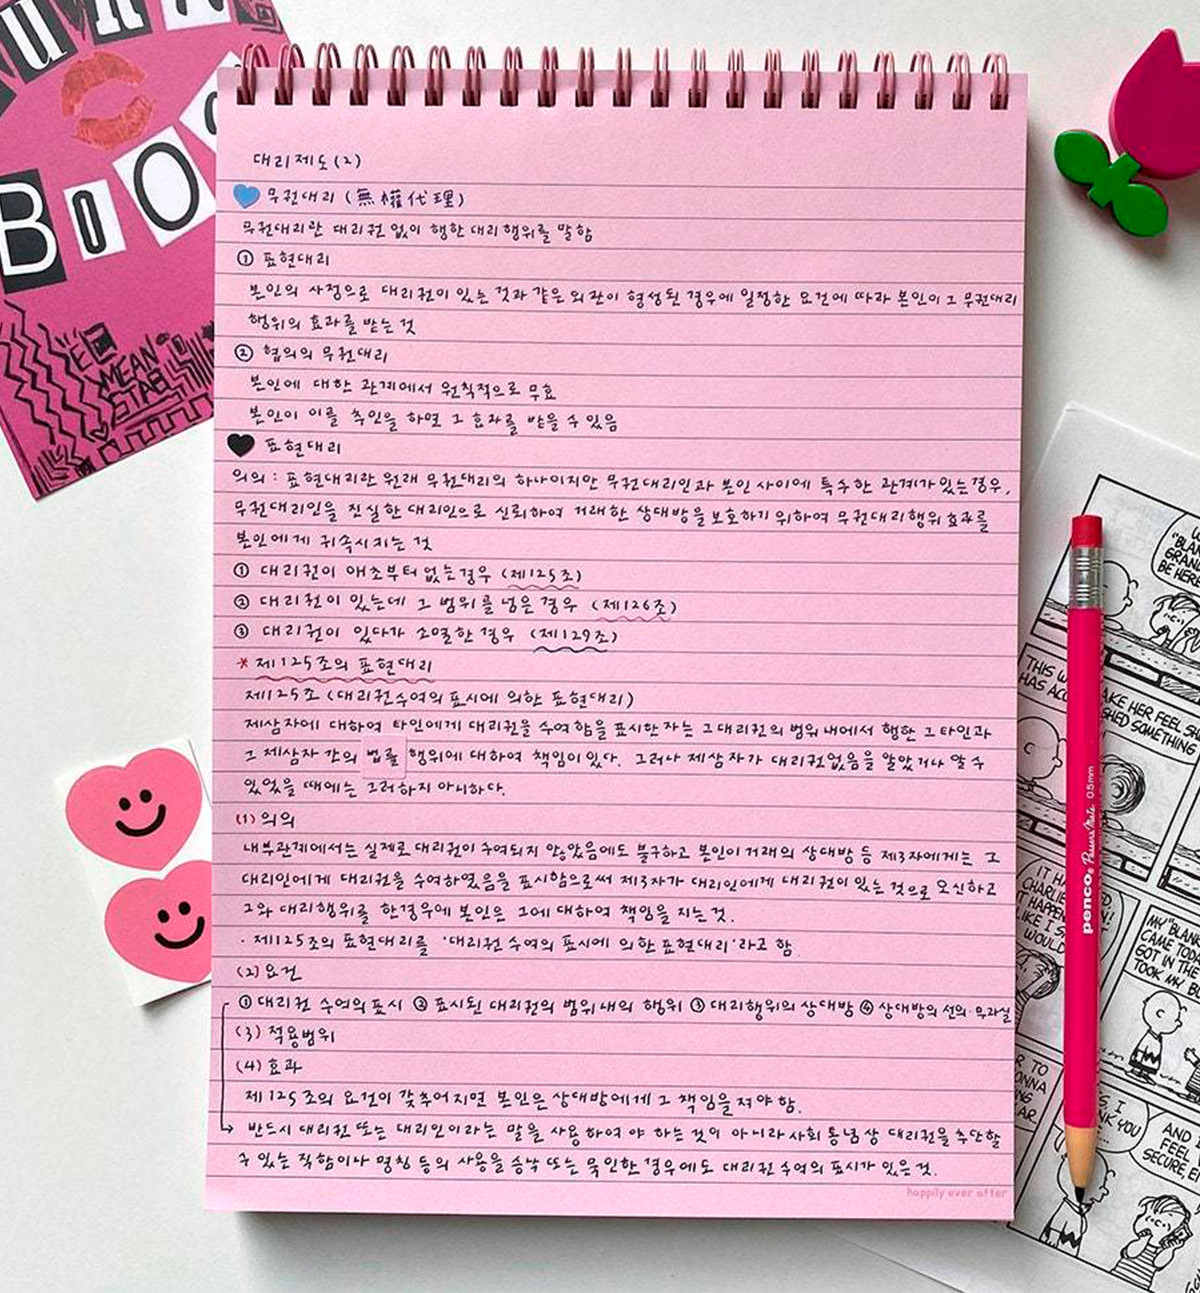 대리제도(2)
무권대리 (無權代理)
무권대리란 대리권 없이 행한 대리행위를 말함
① 표현대리
본인의 사정으로 대리권이 있는 것과 같은 외관이 형성된 경우에 일정한 요건에 따라 본인이 그 무권대리
행위의 효과를 받는 것
② 협의의 무권대리
본인에 대한 관계에서 원칙적으로 무효
본인이 이를 추인을 하면 그 효과를 받을 수 있음
표현대리
의의 : 표현대리란 원래 무권대리의 하나이지만 무권대리인과 본인 사이에 특수한 관계가 있는 경우,
무권대리인을 진실한 대리인으로 신뢰하여 거래한 상대방을 보호하기 위하여 무권대리행위 효과를
본인에게 귀속시키는 것
① 대리권이 애초부터 없는 경우 (제125조)
② 대리권이 있는데 그 범위를 넘은 경우 (제126조)
③ 대리권이 있다가 소멸한 경우 (제129조)
* 제125조의 표현대리
제125조 (대리권수여의 표시에 의한 표현대리)
제삼자에 대하여 타인에게 대리권을 수여함을 표시한 자는 그 대리권의 범위 내에서 행한 그 타인과
그 제삼자 간의 법률 행위에 대하여 책임이 있다. 그러나 제삼자가 대리권없음을 알았거나 알 수
있었을 때에는 그러하지 아니하다.
(1) 의의
내부관계에서는 실제로 대리권이 수여되지 않았음에도 불구하고 본인이 거래의 상대방 등 제3자에게는 그
대리인에게 대리권을 수여하였음을 표시함으로써 제3자가 대리인에게 대리권이 있는 것으로 오신하고
그와 대리행위를 한 경우에 본인은 그에 대하여 책임을 지는 것.
· 제125조의 표현대리를 '대리권 수여의 표시에 의한 표현대리'라고 함.
(2) 요건
① 대리권 수여의 표시 ② 표시된 대리권의 범위 내의 행위 ③ 대리행위의 상대방 ④ 상대방의 선의·무과실
(3) 적용범위
(4) 효과
제125조의 요건이 갖추어지면 본인은 상대방에게 그 책임을 져야 함.
반드시 대리권 또는 대리인이라는 말을 사용하여야 하는 것이 아니라 사회통념상 대리권을 추단할
수 있는 직함이나 명칭 등의 사용을 승낙 또는 묵인한 경우에도 대리권 수여의 표시가 있은 것.
happily ever after
BOO
MEAN
STAB
penco® Passers Mate 0.5mm
BE HERE
THIS
HAS
MAKE HER FEEL
SOMETHING
CHARLIE
HAPPEN
LIKE I
WOULD
MY "BLAN
CAME TODA
GOT IN THE
TOOK MY
YOU
AND
FEEL
SECURE